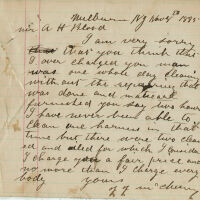 Melburn Ny Nov 4th 1895
Mr A H Blood
I am very sorry
that you think that
I over charged you man
was one whole day cleaning
without the repairing that
was done and material
furnished you say two hours
I have never been able to
clean one harness in that
time but there were two cleaned
and oiled for which I consider
I charge you a fair price and
no more than I charge every
body yours